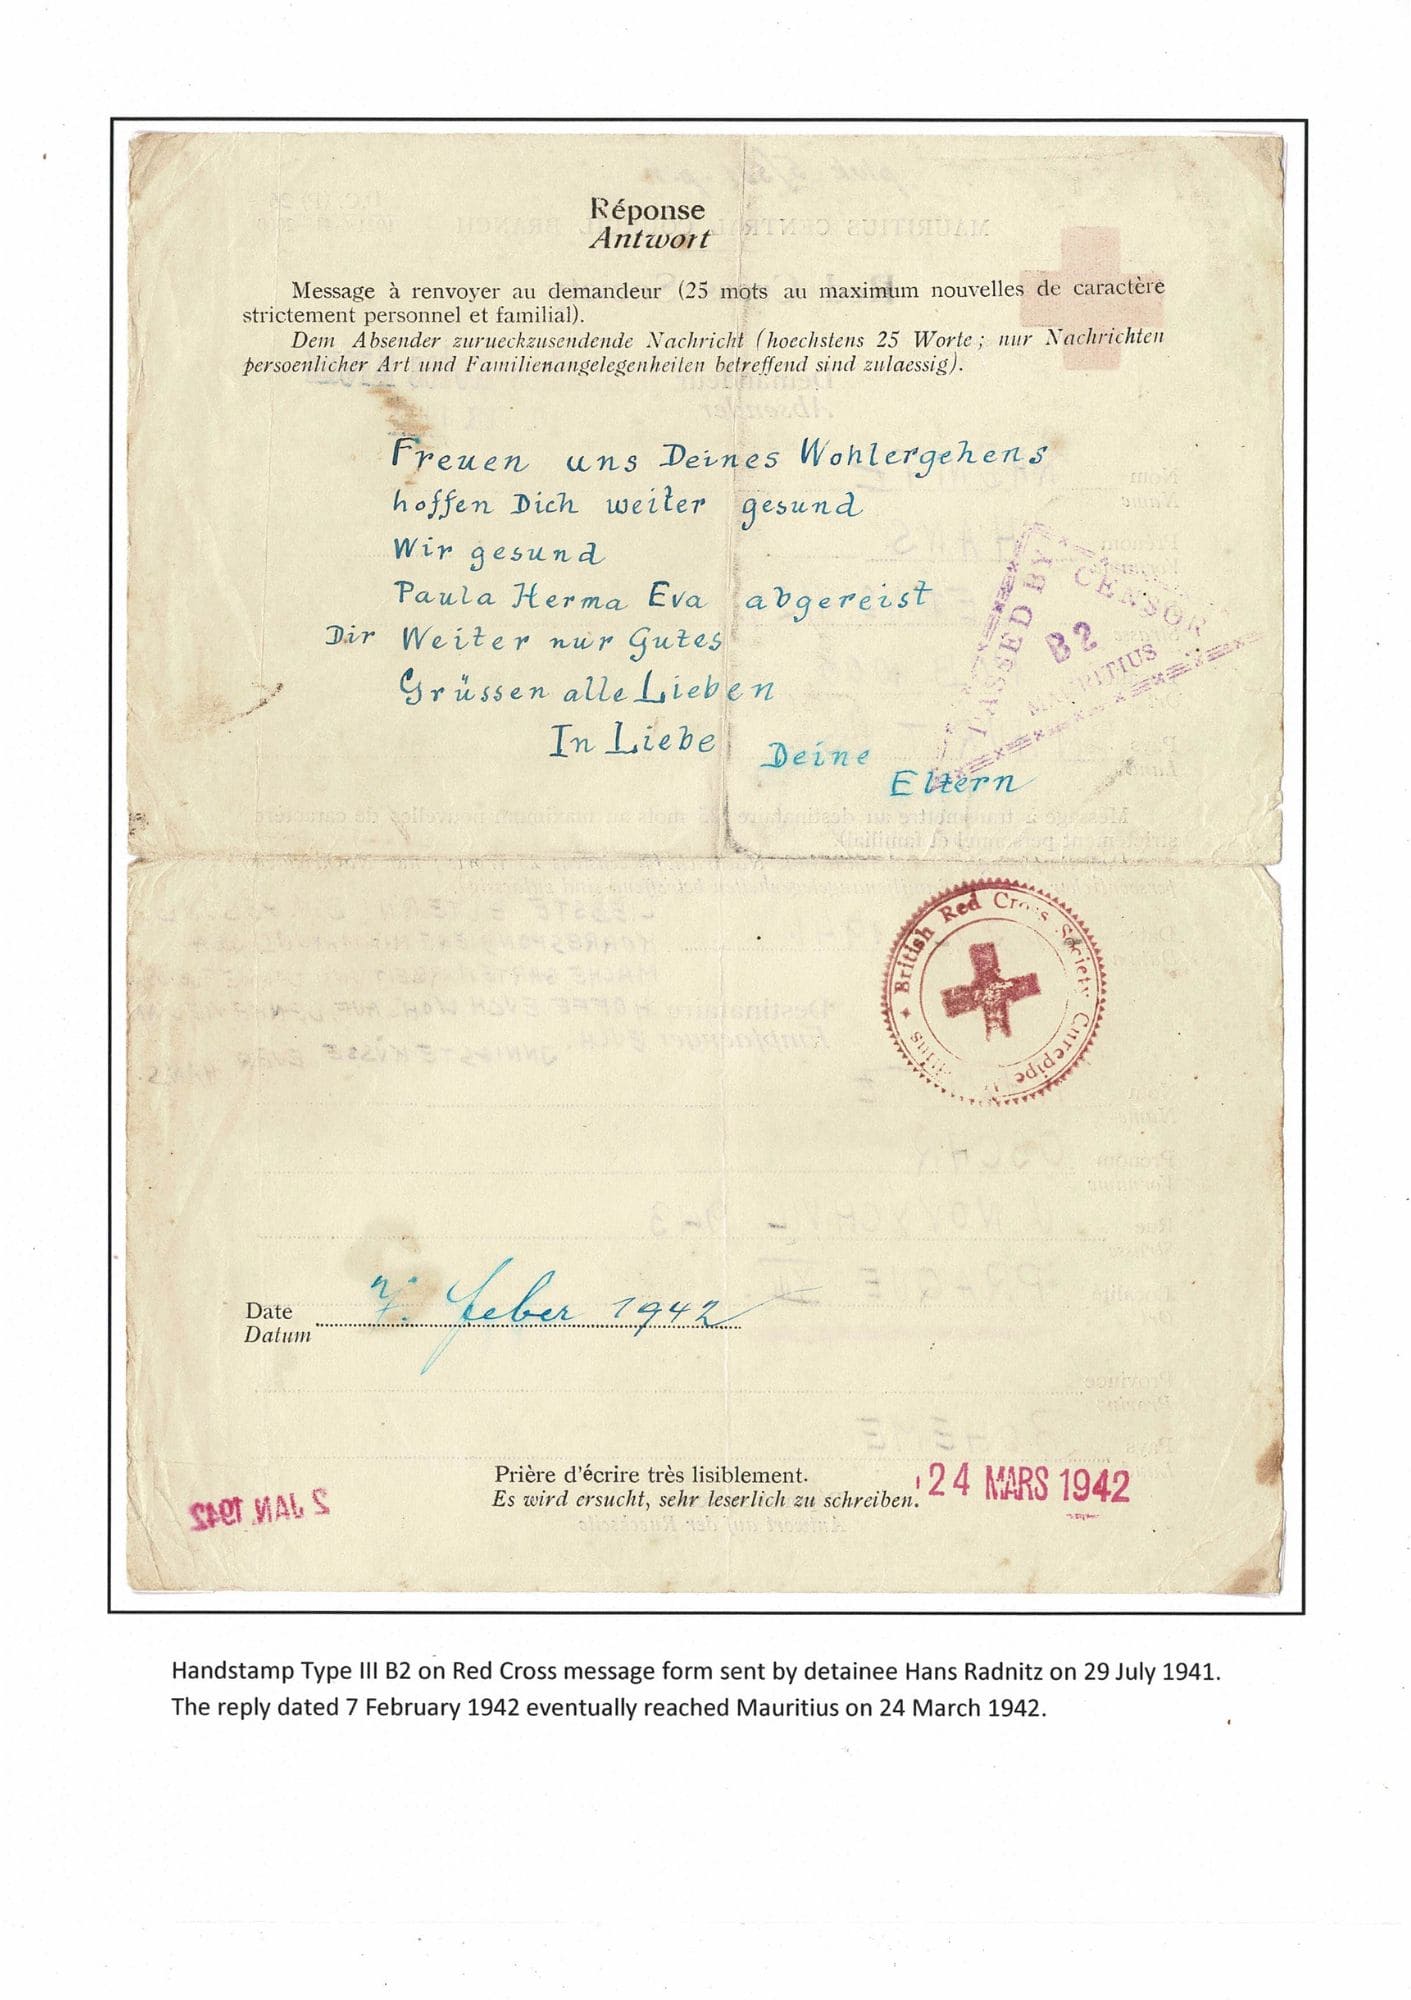 Réponse
Antwort
Message à renvoyer au demandeur (25 mots au maximum nouvelles de caractère
strictement personnel et familial).
Dem Absender zurueckzusendende Nachricht (hoechstens 25 Worte ; nur Nachrichten
persoenlicher Art und Familienangelegenheiten betreffend sind zulaessig).
Freuen uns Deines Wohlergehens
hoffen Dich weiter gesund
Wir gesund
Paula Herma Eva abgereist
Dir Weiter nur Gutes
Grüssen alle Lieben
In Liebe Deine
Eltern
PASSED BY CENSOR
B2
MAURITIUS
British Red Cross Society Curepipe
Date
Datum
7. feber 1942
Prière d'écrire très lisiblement.
Es wird ersucht, sehr leserlich zu schreiben.
24 MARS 1942
2 JAN 1942
Handstamp Type III B2 on Red Cross message form sent by detainee Hans Radnitz on 29 July 1941.
The reply dated 7 February 1942 eventually reached Mauritius on 24 March 1942.